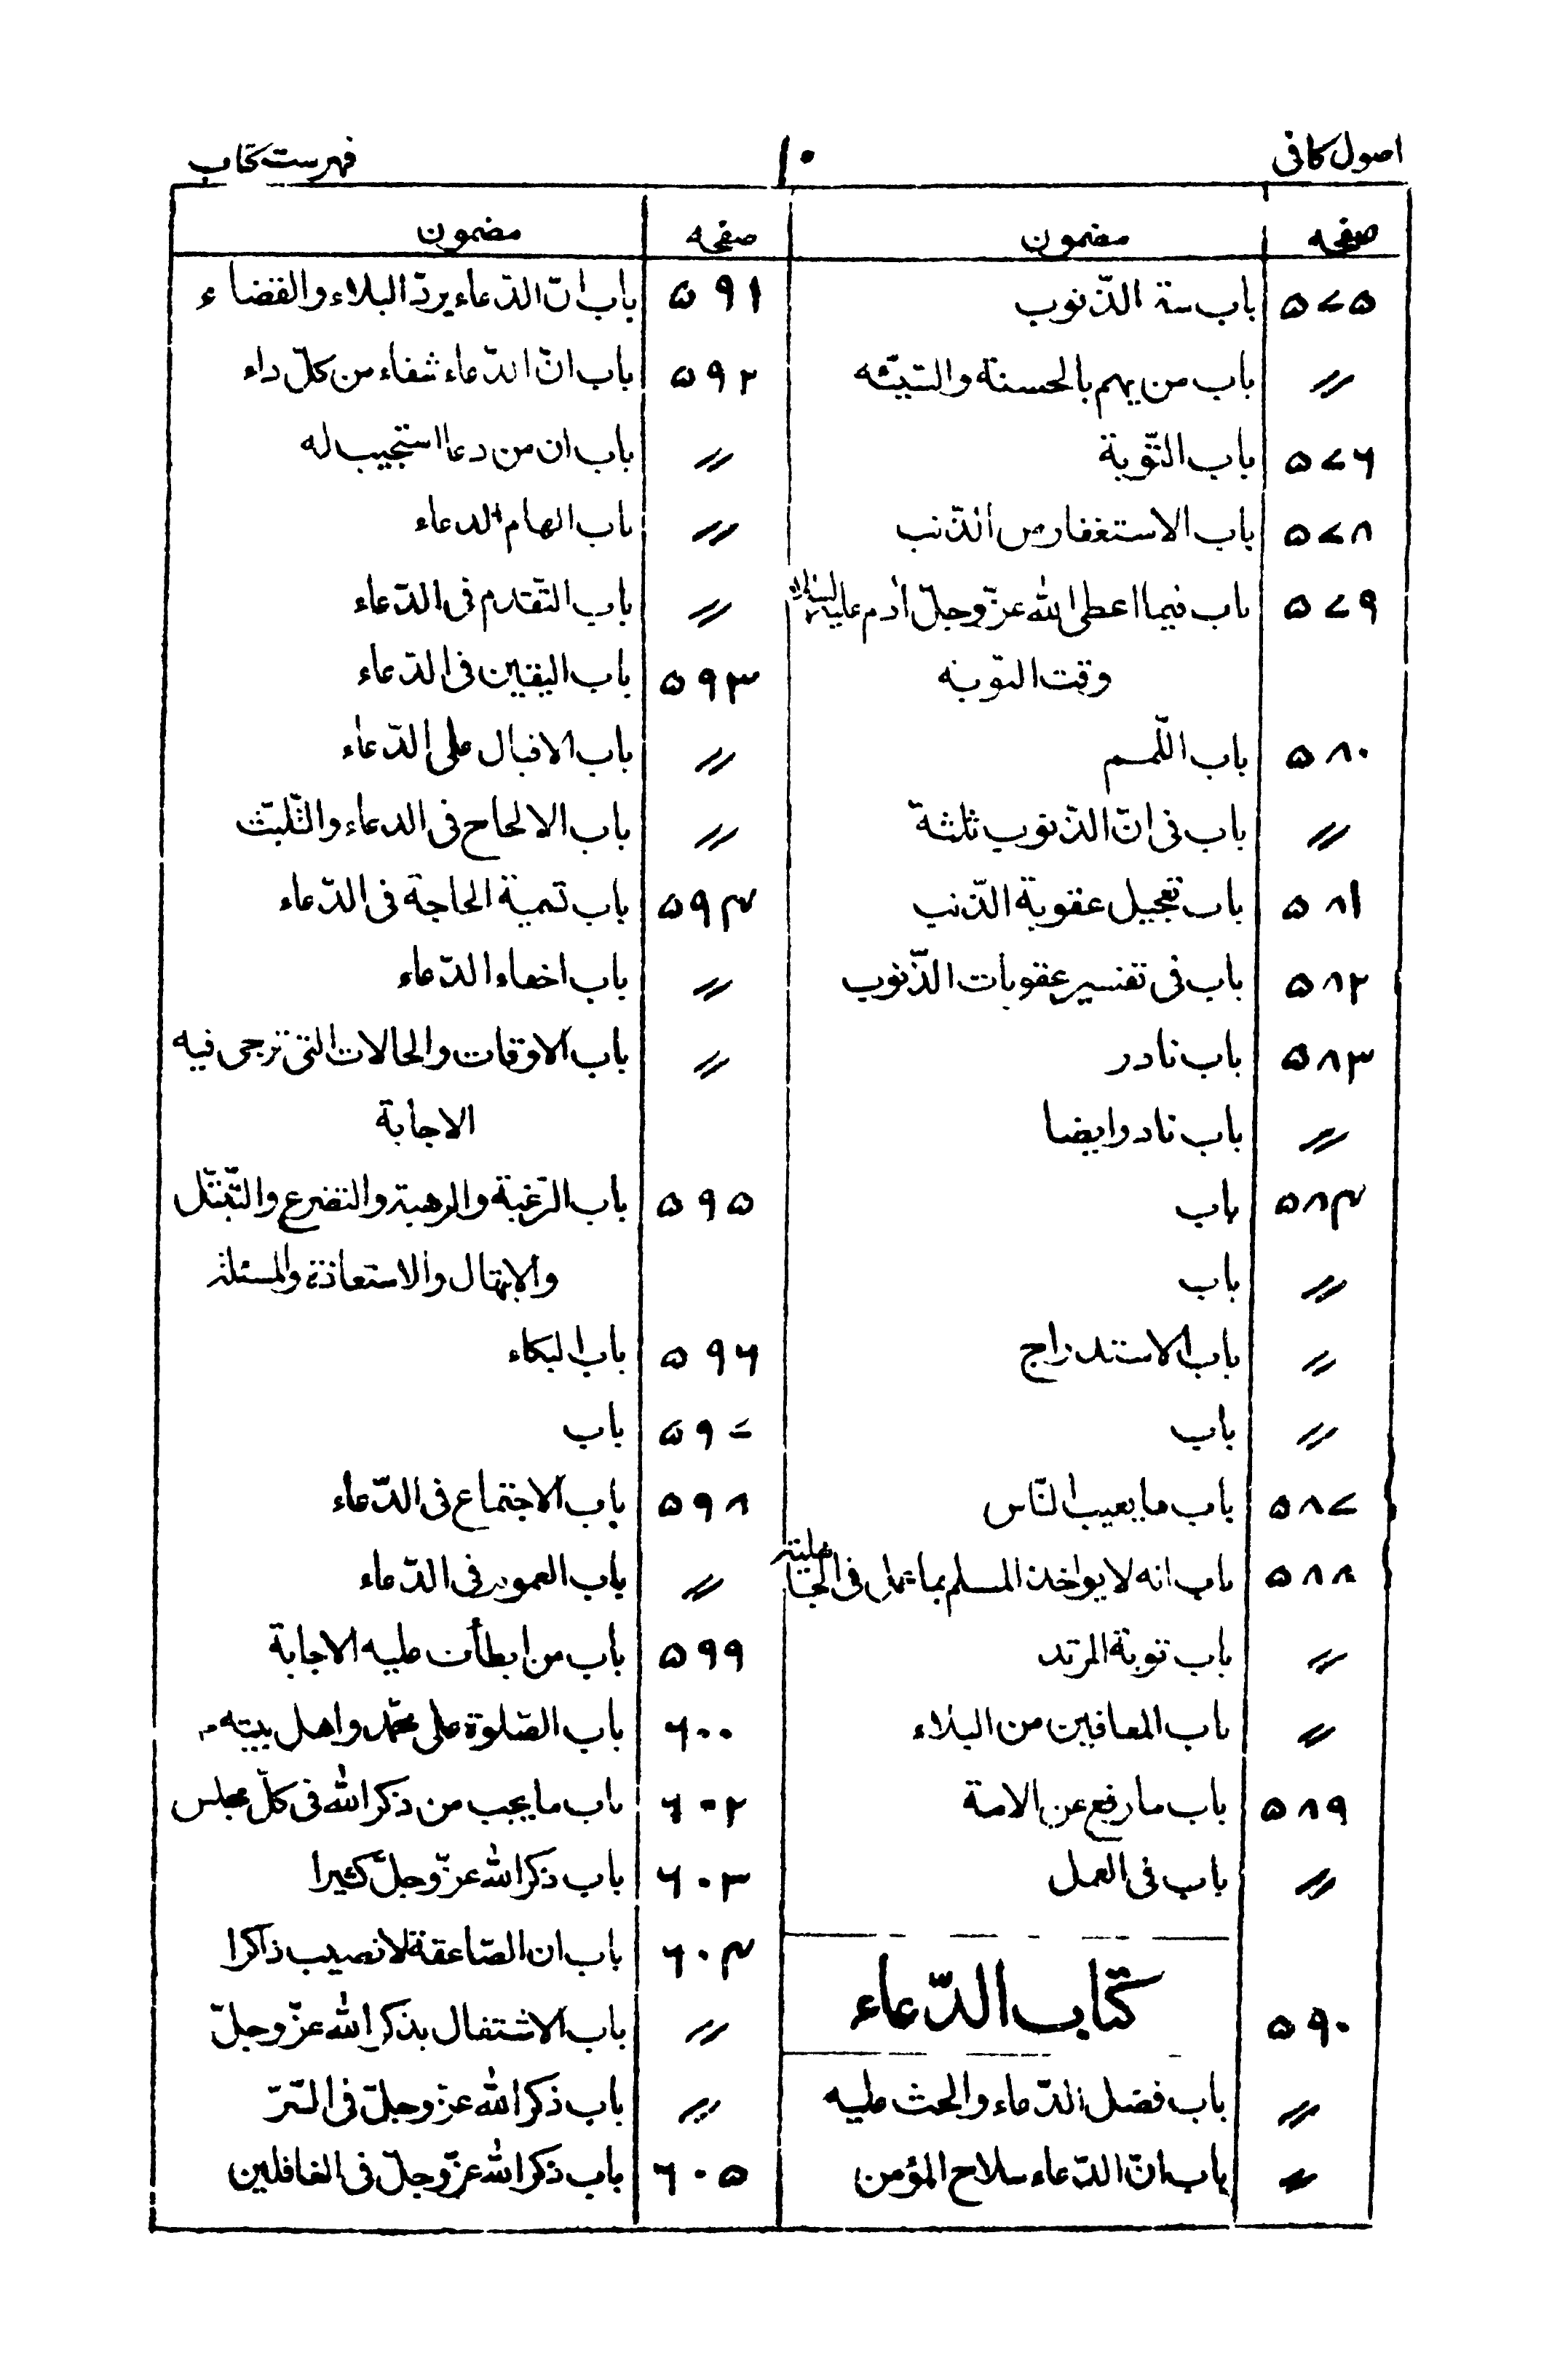 اصول کافی
۱۰
فہرست کتاب
صفحہ
مضمون
۵۷۵ باب ستۃ الذّنوب
〃 باب من یہم بالحسنۃ والسّیّئه
۵۷۶ باب التّوبۃ
۵۷۸ باب الاستغفار من الذّنب
۵۷۹ باب فیما اعطی الله عزّوجلّ اٰدم علیہ السلام
وقت التّوبہ
۵۸۰ باب اللّمم
〃 باب فی انّ الذّنوب ثلثۃ
۵۸۱ باب تعجیل عقوبۃ الذّنب
۵۸۲ باب فی تفسیر عقوبات الذّنوب
۵۸۳ باب نادر
〃 باب نادر ایضا
۵۸۴ باب
〃 باب
〃 باب الاستدراج
〃 باب
۵۸۷ باب ما یعیب النّاس
۵۸۸ باب انہ لا یواخذ المسلم بما عمل فی الجاھلیتہ
〃 باب توبۃ المرتد
〃 باب المعافین من البلاء
۵۸۹ باب ما رفع عن الامۃ
〃 باب فی العمل
۵۹۰ کتاب الدّعاء
〃 باب فضل الدّعاء والحث علیہ
〃 باب انّ الدّعاء سلاح المؤمن
صفحہ
مضمون
۵۹۱ باب انّ الدّعاء یردّ البلاء والقضاء
۵۹۲ باب انّ الدّعاء شفاء من کلّ داء
〃 باب ان من دعا استجیب لہ
〃 باب الھام الدعاء
〃 باب التّقدم فی الدّعاء
۵۹۳ باب الیقین فی الدّعاء
〃 باب الاقبال علی الدّعاء
〃 باب الالحاح فی الدعاء والتّلبّث
۵۹۴ باب تسمیۃ الحاجۃ فی الدّعاء
〃 باب اخفاء الدّعاء
〃 باب الاوقات والحالات التی ترجی فیہ
الاجابۃ
۵۹۵ باب الرّغبۃ والرھبتہ والتضرع والتّبتّل
والابتھال والاستعاذۃ والمسئلتہ
۵۹۶ باب البکاء
۵۹۷ باب
۵۹۸ باب الاجتماع فی الدّعاء
〃 باب العموم فی الدّعاء
۵۹۹ باب من ابطأت علیہ الاجابۃ
۶۰۰ باب الصّلوۃ علی محمّد واھل بیتہ
۶۰۲ باب ما یجب من ذکر الله فی کلّ مجلس
۶۰۳ باب ذکر الله عزّوجلّ کثیرا
۶۰۴ باب ان الصّاعقۃ لا تصیب ذاکرا
〃 باب الاشتغال بذکر الله عزّوجلّ
〃 باب ذکر الله عزوجلّ فی السّرّ
۶۰۵ باب ذکر الله عزّوجلّ فی الغافلین